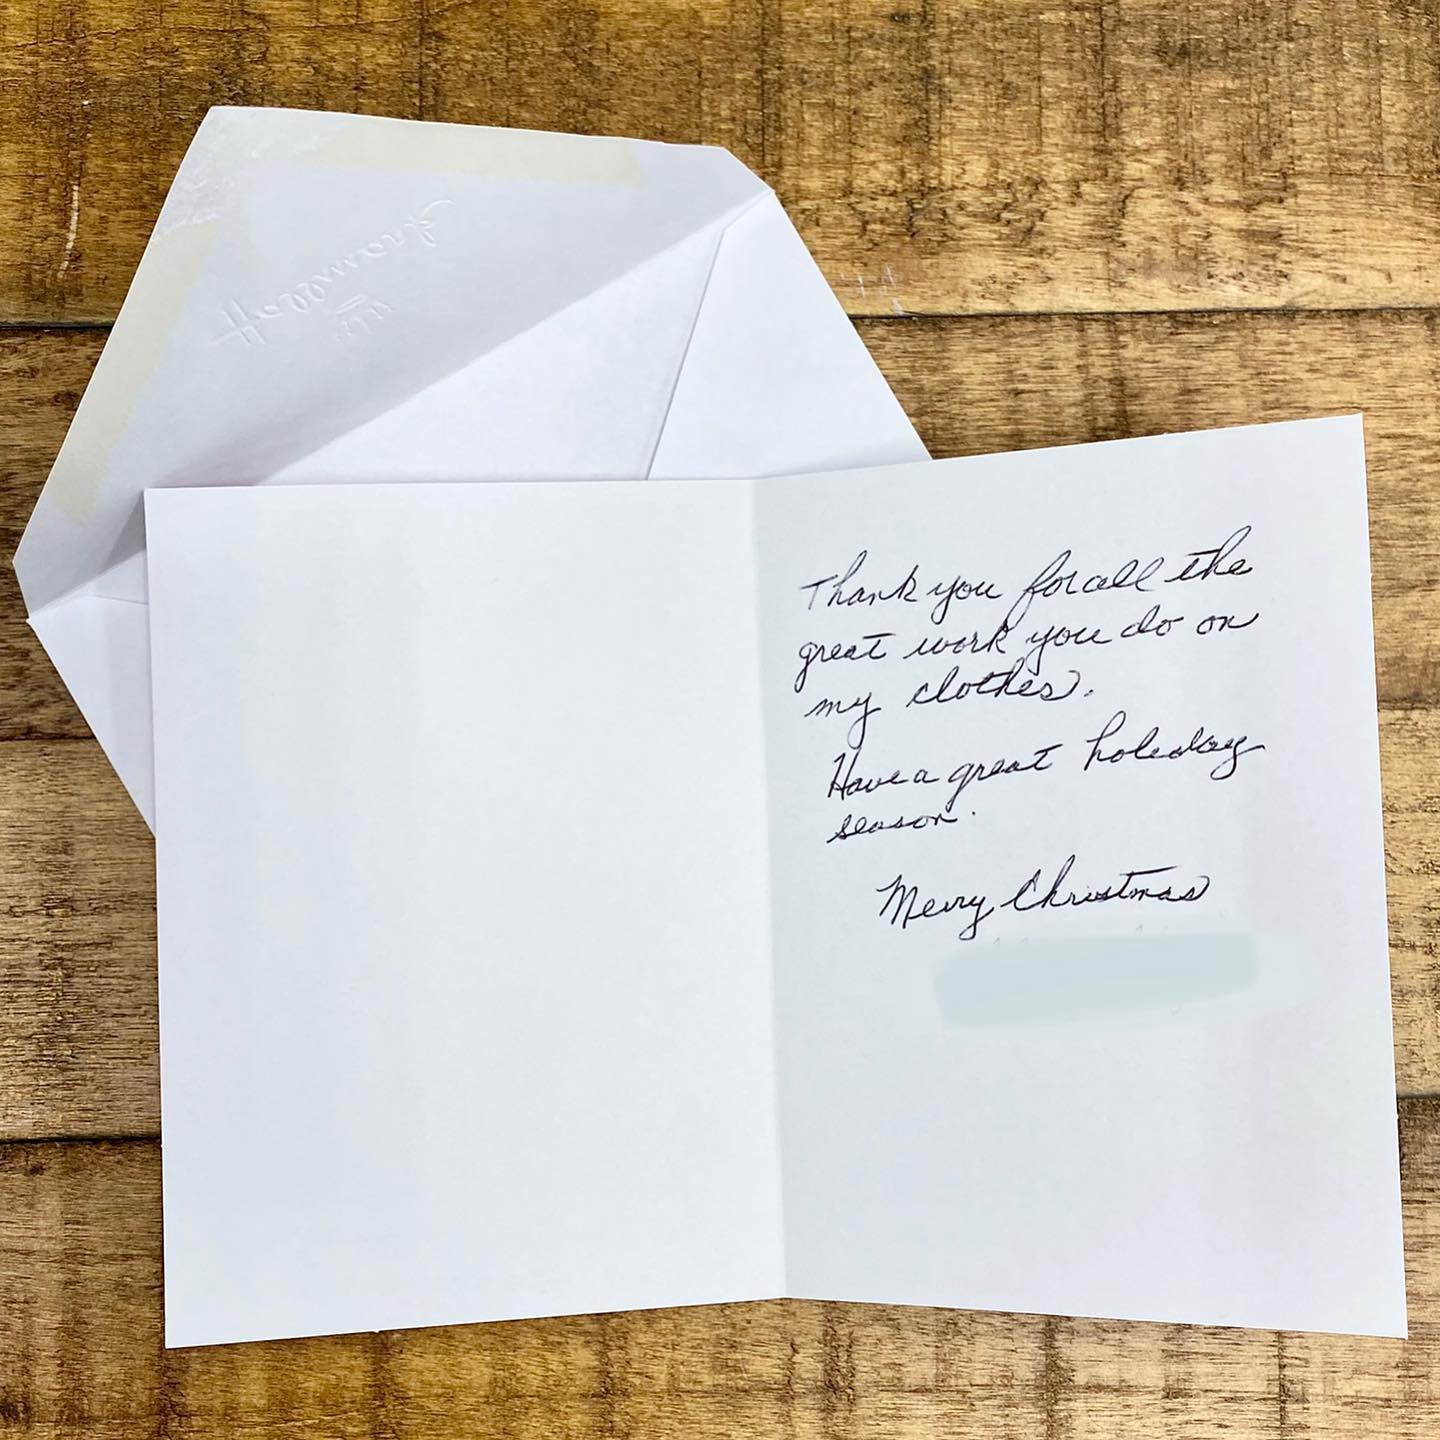 Hallmark
Thank you for all the
great work you do on
my clothes.
Have a great holiday
season.
Merry Christmas